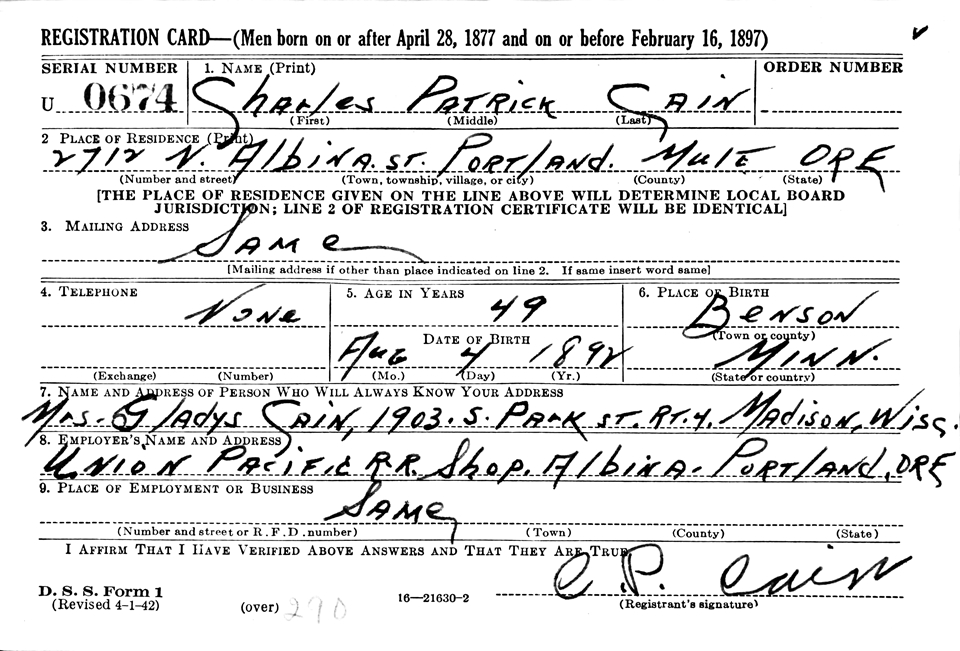 REGISTRATION CARD—(Men born on or after April 28, 1877 and on or before February 16, 1897)
SERIAL NUMBER 1. NAME (Print) ORDER NUMBER
U 0674 Charles Patrick Cain
(First) (Middle) (Last)
2 PLACE OF RESIDENCE (Print)
2712 N. Albina. St. Portland. Mult ORE
(Number and street) (Town, township, village, or city) (County) (State)
[THE PLACE OF RESIDENCE GIVEN ON THE LINE ABOVE WILL DETERMINE LOCAL BOARD
JURISDICTION; LINE 2 OF REGISTRATION CERTIFICATE WILL BE IDENTICAL]
3. MAILING ADDRESS
Same
[Mailing address if other than place indicated on line 2. If same insert word same]
4. TELEPHONE 5. AGE IN YEARS 6. PLACE OF BIRTH
None 49 Benson
DATE OF BIRTH (Town or county)
Aug 4 1892 Minn.
(Exchange) (Number) (Mo.) (Day) (Yr.) (State or country)
7. NAME AND ADDRESS OF PERSON WHO WILL ALWAYS KNOW YOUR ADDRESS
Mrs. Gladys Cain, 1903. S. Park St. Rt. 4. Madison, Wisc.
8. EMPLOYER'S NAME AND ADDRESS
Union Pacific R.R. Shop. Albina. Portland, ORE
9. PLACE OF EMPLOYMENT OR BUSINESS
Same
(Number and street or R. F. D. number) (Town) (County) (State)
I AFFIRM THAT I HAVE VERIFIED ABOVE ANSWERS AND THAT THEY ARE TRUE.
C. P. Cain
D. S. S. Form 1
(Revised 4-1-42) (over) 290 16—21630-2 (Registrant's signature)